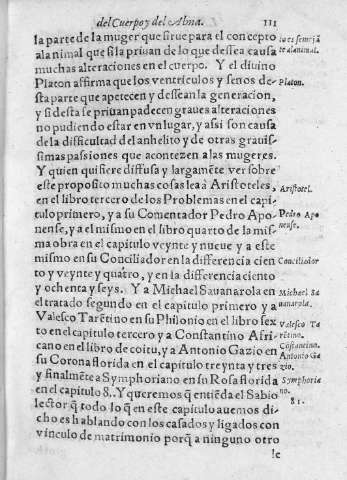 del Cuerpo y del Alma. 111
la parte de la muger que sirue para el concepto
al animal que si la priuan de lo que dessea causa
muchas alteraciones en el cuerpo. Y el diuino
Platon affirma que los ventriculos y senos de-
sta parte que apetecen y dessean la generacion,
y si desta se priuan padecen graues alteraciones
no pudiendo estar en vn lugar, y assi son causa
de la difficultad del anhelito y de otras grauis-
simas passiones que acontezen a las mugeres.
Y quien quisiere diffusa y largamẽte ver sobre
este proposito muchas cosas lea a Aristoteles,
en el libro tercero de los Problemas en el capi-
tulo primero, y a su Comentador Pedro Apo-
nense, y a el mismo en el libro quarto de la mis-
ma obra en el capitulo veynte y nueue y a este
mismo en su Conciliador en la differencia cien
to y veynte y quatro, y en la differencia ciento
y ochenta y seys. Y a Michael Sauanarola en
el tratado segundo en el capitulo primero y a
Valesco Tarẽtino en su Philonio en el libro sex
to en el capitulo tercero y a Constantino Afri-
cano en el libro de coitu, y a Antonio Gazio en
su Corona florida en el capitulo treynta y tres
y finalmẽte a Symphoriano en su Rosa florida
en el capitulo 8. Y queremos q̃ entiẽda el Sabio
lector q̃ todo lo q̃ en este capitulo auemos di-
cho es hablando con los casados y ligados con
vinculo de matrimonio porq̃ a ninguno otro
le
io es semejã
te al animal.
Platon.
Aristotel.
Pedro Apo
nense.
Conciliador
Michael Sa
uanarola.
Valesco Ta
rẽtino.
Cõstantino.
Antonio Ga
zio.
Symphoria
no.
81.